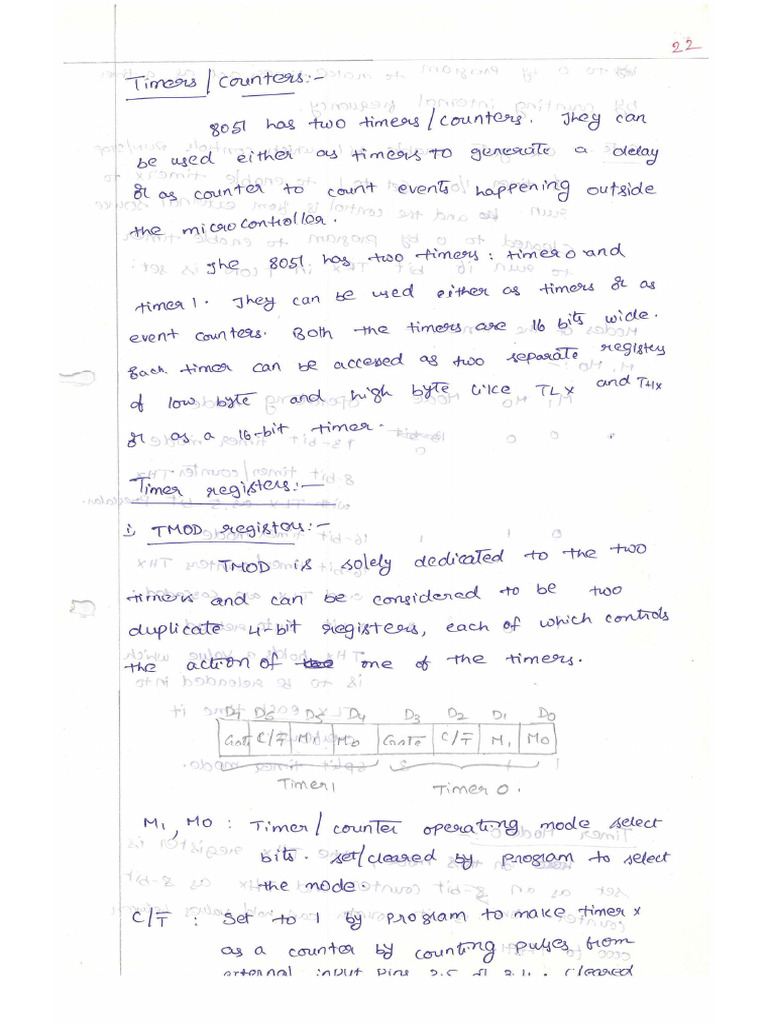 22
Timers/Counters:-
8051 has two timers/counters. They can
be used either as timers to generate a delay
or as counter to count events happening outside
the microcontroller.
The 8051 has two timers: timer 0 and
timer 1. They can be used either as timers or as
event counters. Both the timers are 16 bits wide.
Each timer can be accessed as two separate registers
of low byte and high byte like TLX and THX
or as a 16-bit timer.
Timer registers:-
i, TMOD registers:-
TMOD is solely dedicated to the two
timers and can be considered to be two
duplicate 4-bit registers, each of which controls
the action of one of the timers.
D7 D6 D5 D4 D3 D2 D1 D0
Gate C/T̅ M1 M0 Gate C/T̅ M1 M0
Timer 1 Timer 0.
M1, M0 : Timer/counter operating mode select
bits. set/cleared by program to select
the mode
C/T̅ : Set to 1 by program to make timer x
as a counter by counting pulses from
external input pins 3.5 or 3.4. cleared